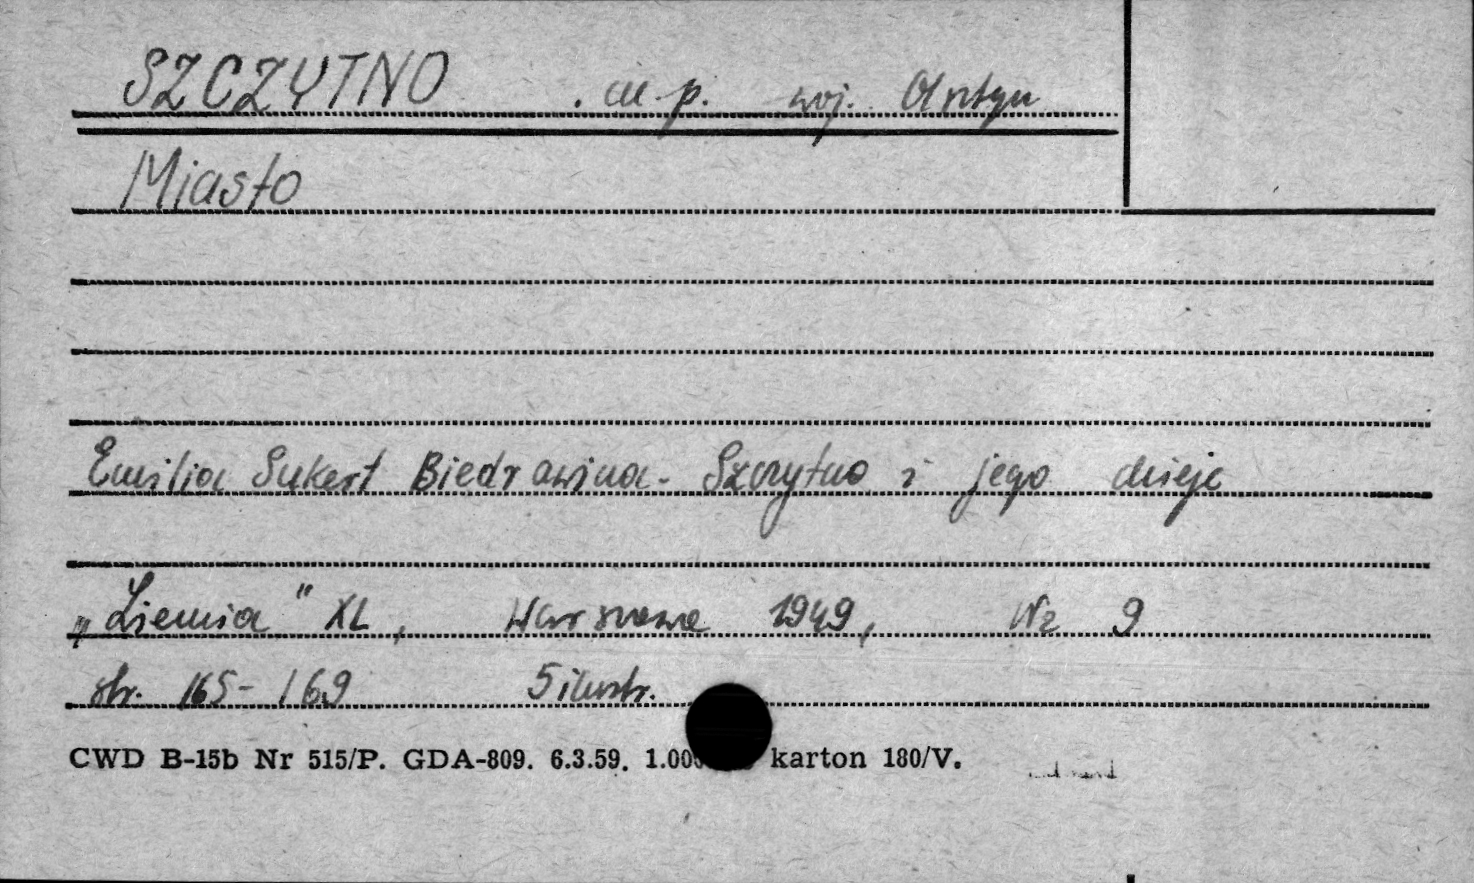 SZCZYTNO . m. p. woj. Olsztyn
Miasto
Emilia Sukert Biedrawina - Szczytno i jego dzieje
„Ziemia" XL, Warszawa 1949, Nr 9
str. 165-169 5 ilustr.
CWD B-15b Nr 515/P. GDA-809. 6.3.59. 1.000 karton 180/V.